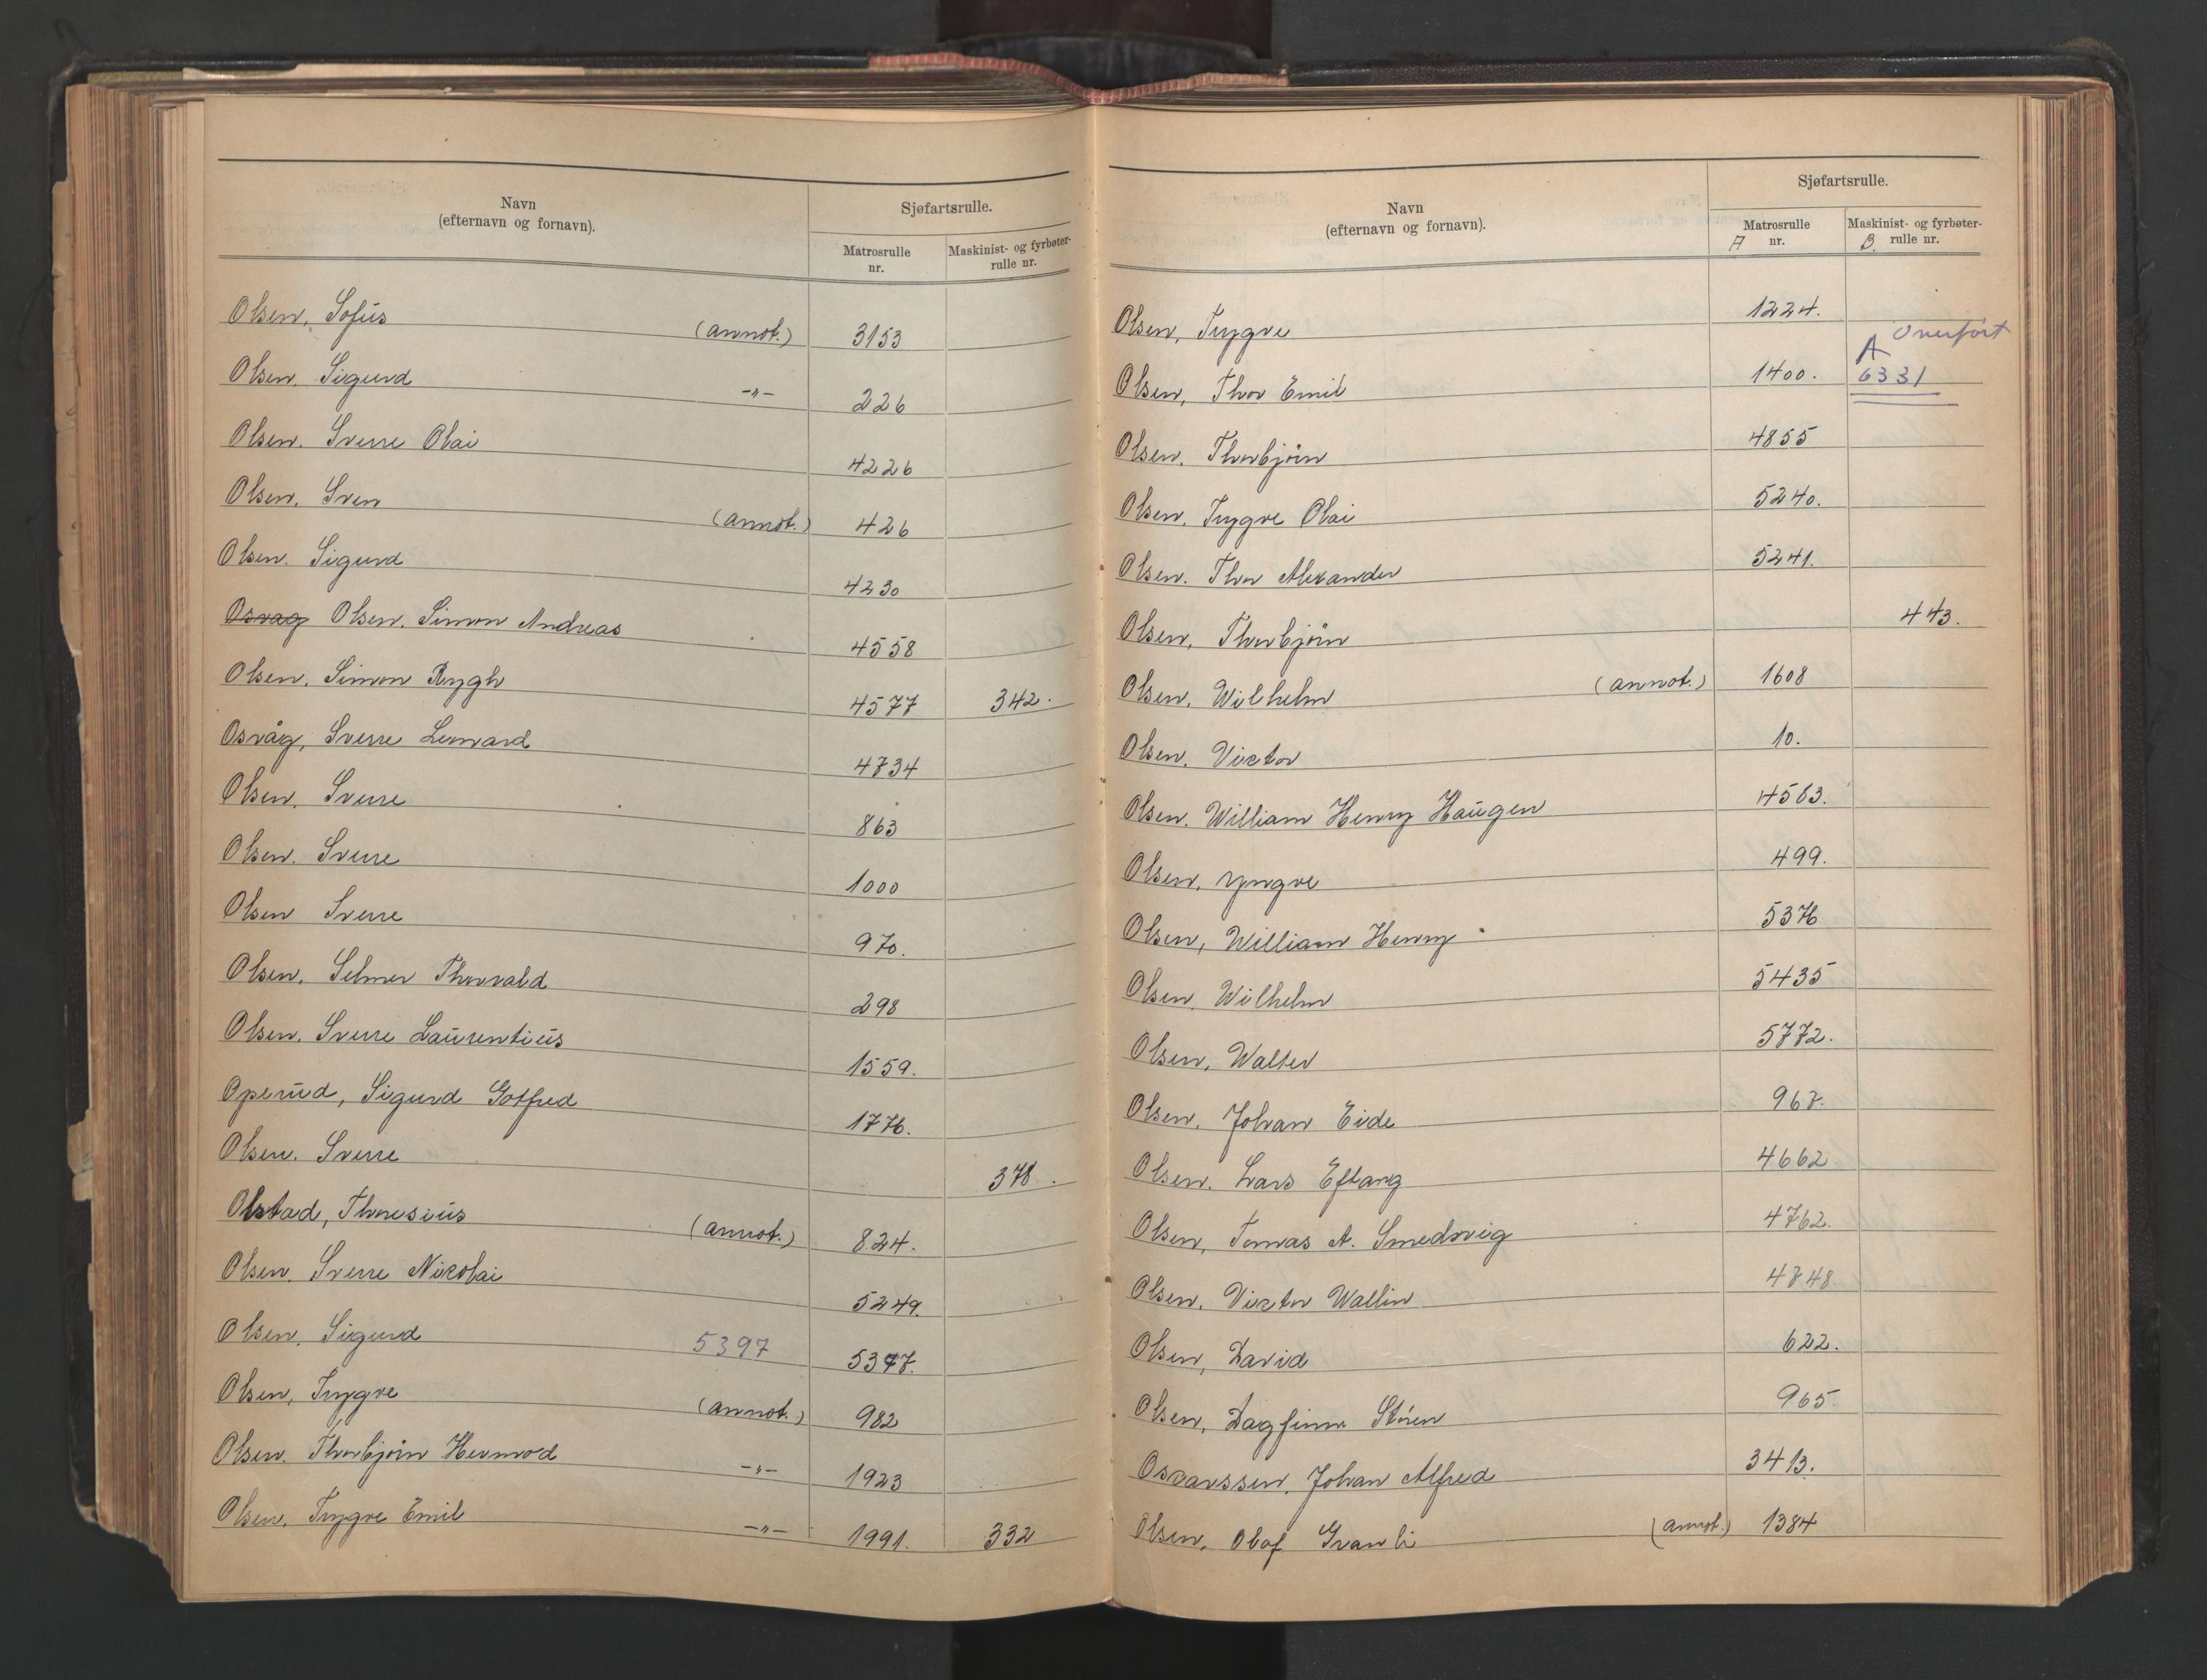 Navn
(efternavn og fornavn).
Sjøfartsrulle.
Matrosrulle nr.
Maskinist- og fyrbøter-rulle nr.
Olsen, Sofus (annot.) 3153
Olsen, Sigurd -"- 226
Olsen. Sverre Olai 4226
Olsen. Sven (annot.) 426
Olsen. Sigurd 4230
Osvag Olsen, Simon Andreas 4558
Olsen, Simon Rygh 4577 342.
Osvåg, Sverre Leonard 4734
Olsen, Sverre 863
Olsen. Sverre 1000
Olsen Sverre 970.
Olsen, Selmer Thorvald 298
Olsen, Sverre Laurentius 1559.
Operud, Sigurd Gotfred 1776.
Olsen. Sverre 378.
Olstad, Thoresius (annot.) 824.
Olsen, Sverre Nikolai 5249.
Olsen, Sigurd 5397
Olsen, Trygve (annot.) 982
Olsen. Thorbjörn Hermod -"- 1923
Olsen, Trygve Emil -"- 1991. 332
Navn
(efternavn og fornavn).
Sjøfartsrulle.
Matrosrulle
A nr.
Maskinist- og fyrbøter-
B. rulle nr.
Olsen, Trygve 1224.
Overført
Olsen, Thor Emil 1400. A 6331
Olsen, Thorbjörn 4855
Olsen, Trygve Olai 5240.
Olsen. Thor Alexander 5241.
Olsen, Thorbjörn 443.
Olsen, Wilhelm (annot.) 1608
Olsen, Victor 10.
Olsen, William Henry Haugen 4563.
Olsen, Yngve 499.
Olsen, William Henry 5376
Olsen, Wilhelm 5435
Olsen, Walter 5772.
Olsen, Johan Eide 967.
Olsen, Lars Eftang 4662.
Olsen, Tomas A. Smedsvig 4762.
Olsen, Victor Wallin 4748
Olsen, David 622.
Olsen, Dagfinn Stören 965.
Oskarssen, Johan Alfred 3413.
Olsen, Olaf Granli (annot.) 1384